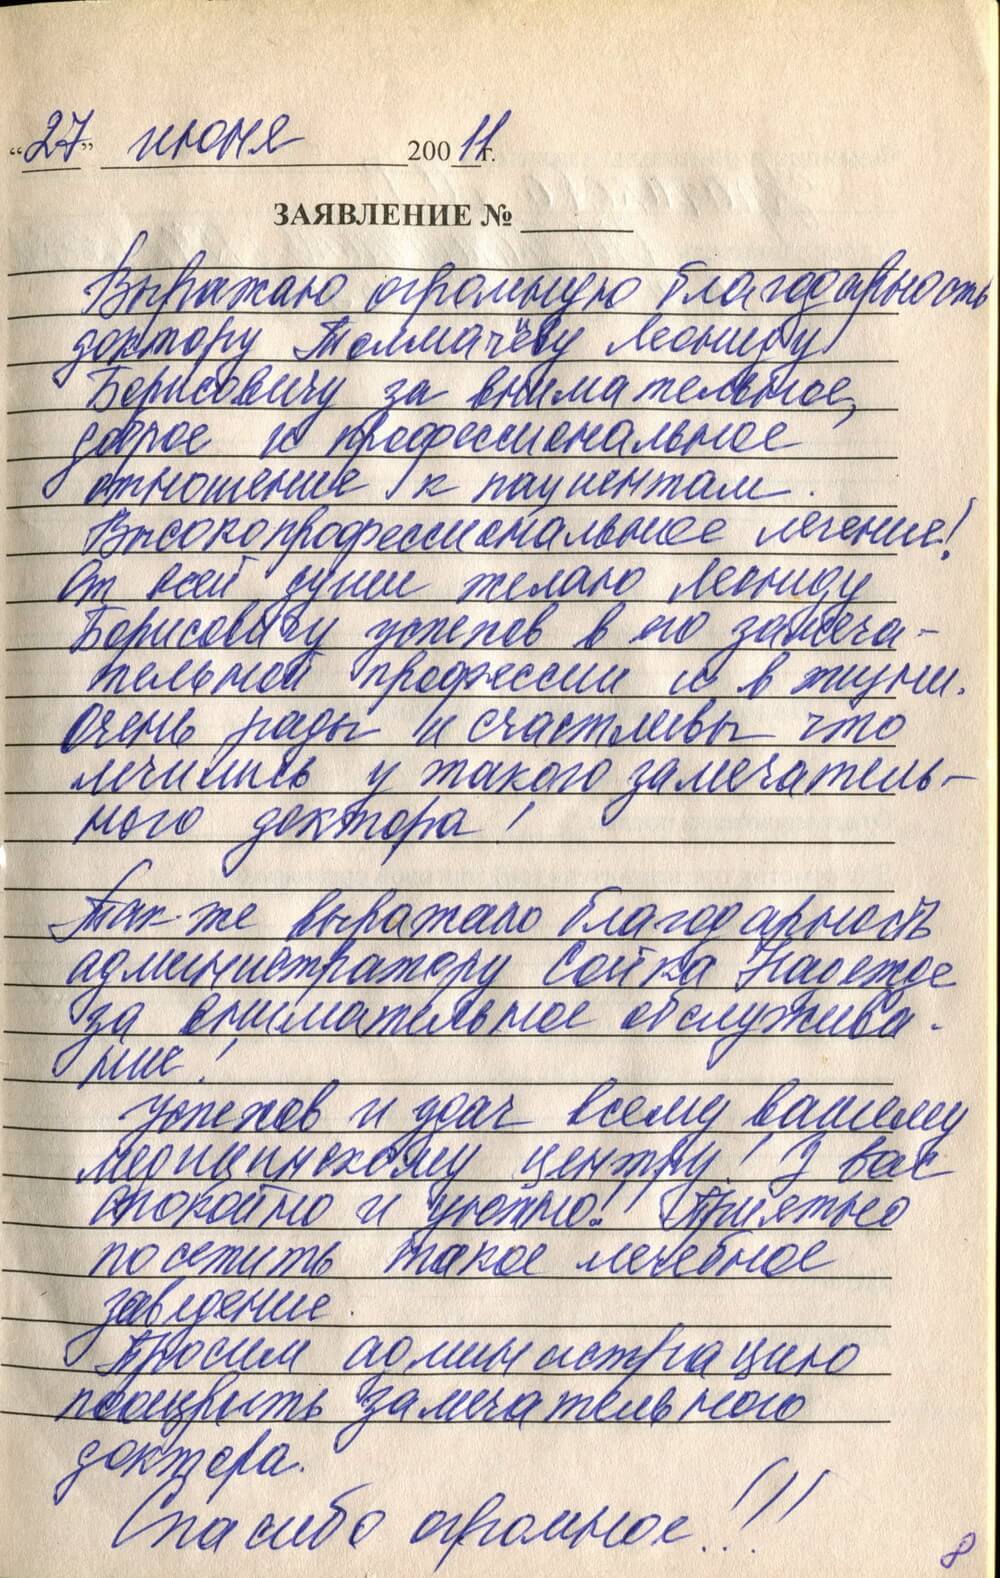 "27" июня 2001 11 г.
ЗАЯВЛЕНИЕ №
Выражаю огромную благодарность
доктору Толмачёву Леониду
Борисовичу за внимательное,
доброе и профессиональное
отношение к пациентам.
Высокопрофессиональное лечение!
От всей души желаю Леониду
Борисовичу успехов в его замеча-
тельной профессии и в жизни.
Очень рады и счастливы что
лечились у такого замечатель-
ного доктора!
Так-же выражаю благодарность
администратору Сойка Надежде
за внимательное обслужива-
ние!
Успехов и удач всему вашему
медицинскому центру! У вас
спокойно и уютно! Приятно
посетить такое лечебное
заведение.
Просим администрацию
поощрить замечательного
доктора.
Спасибо огромное!!!
8